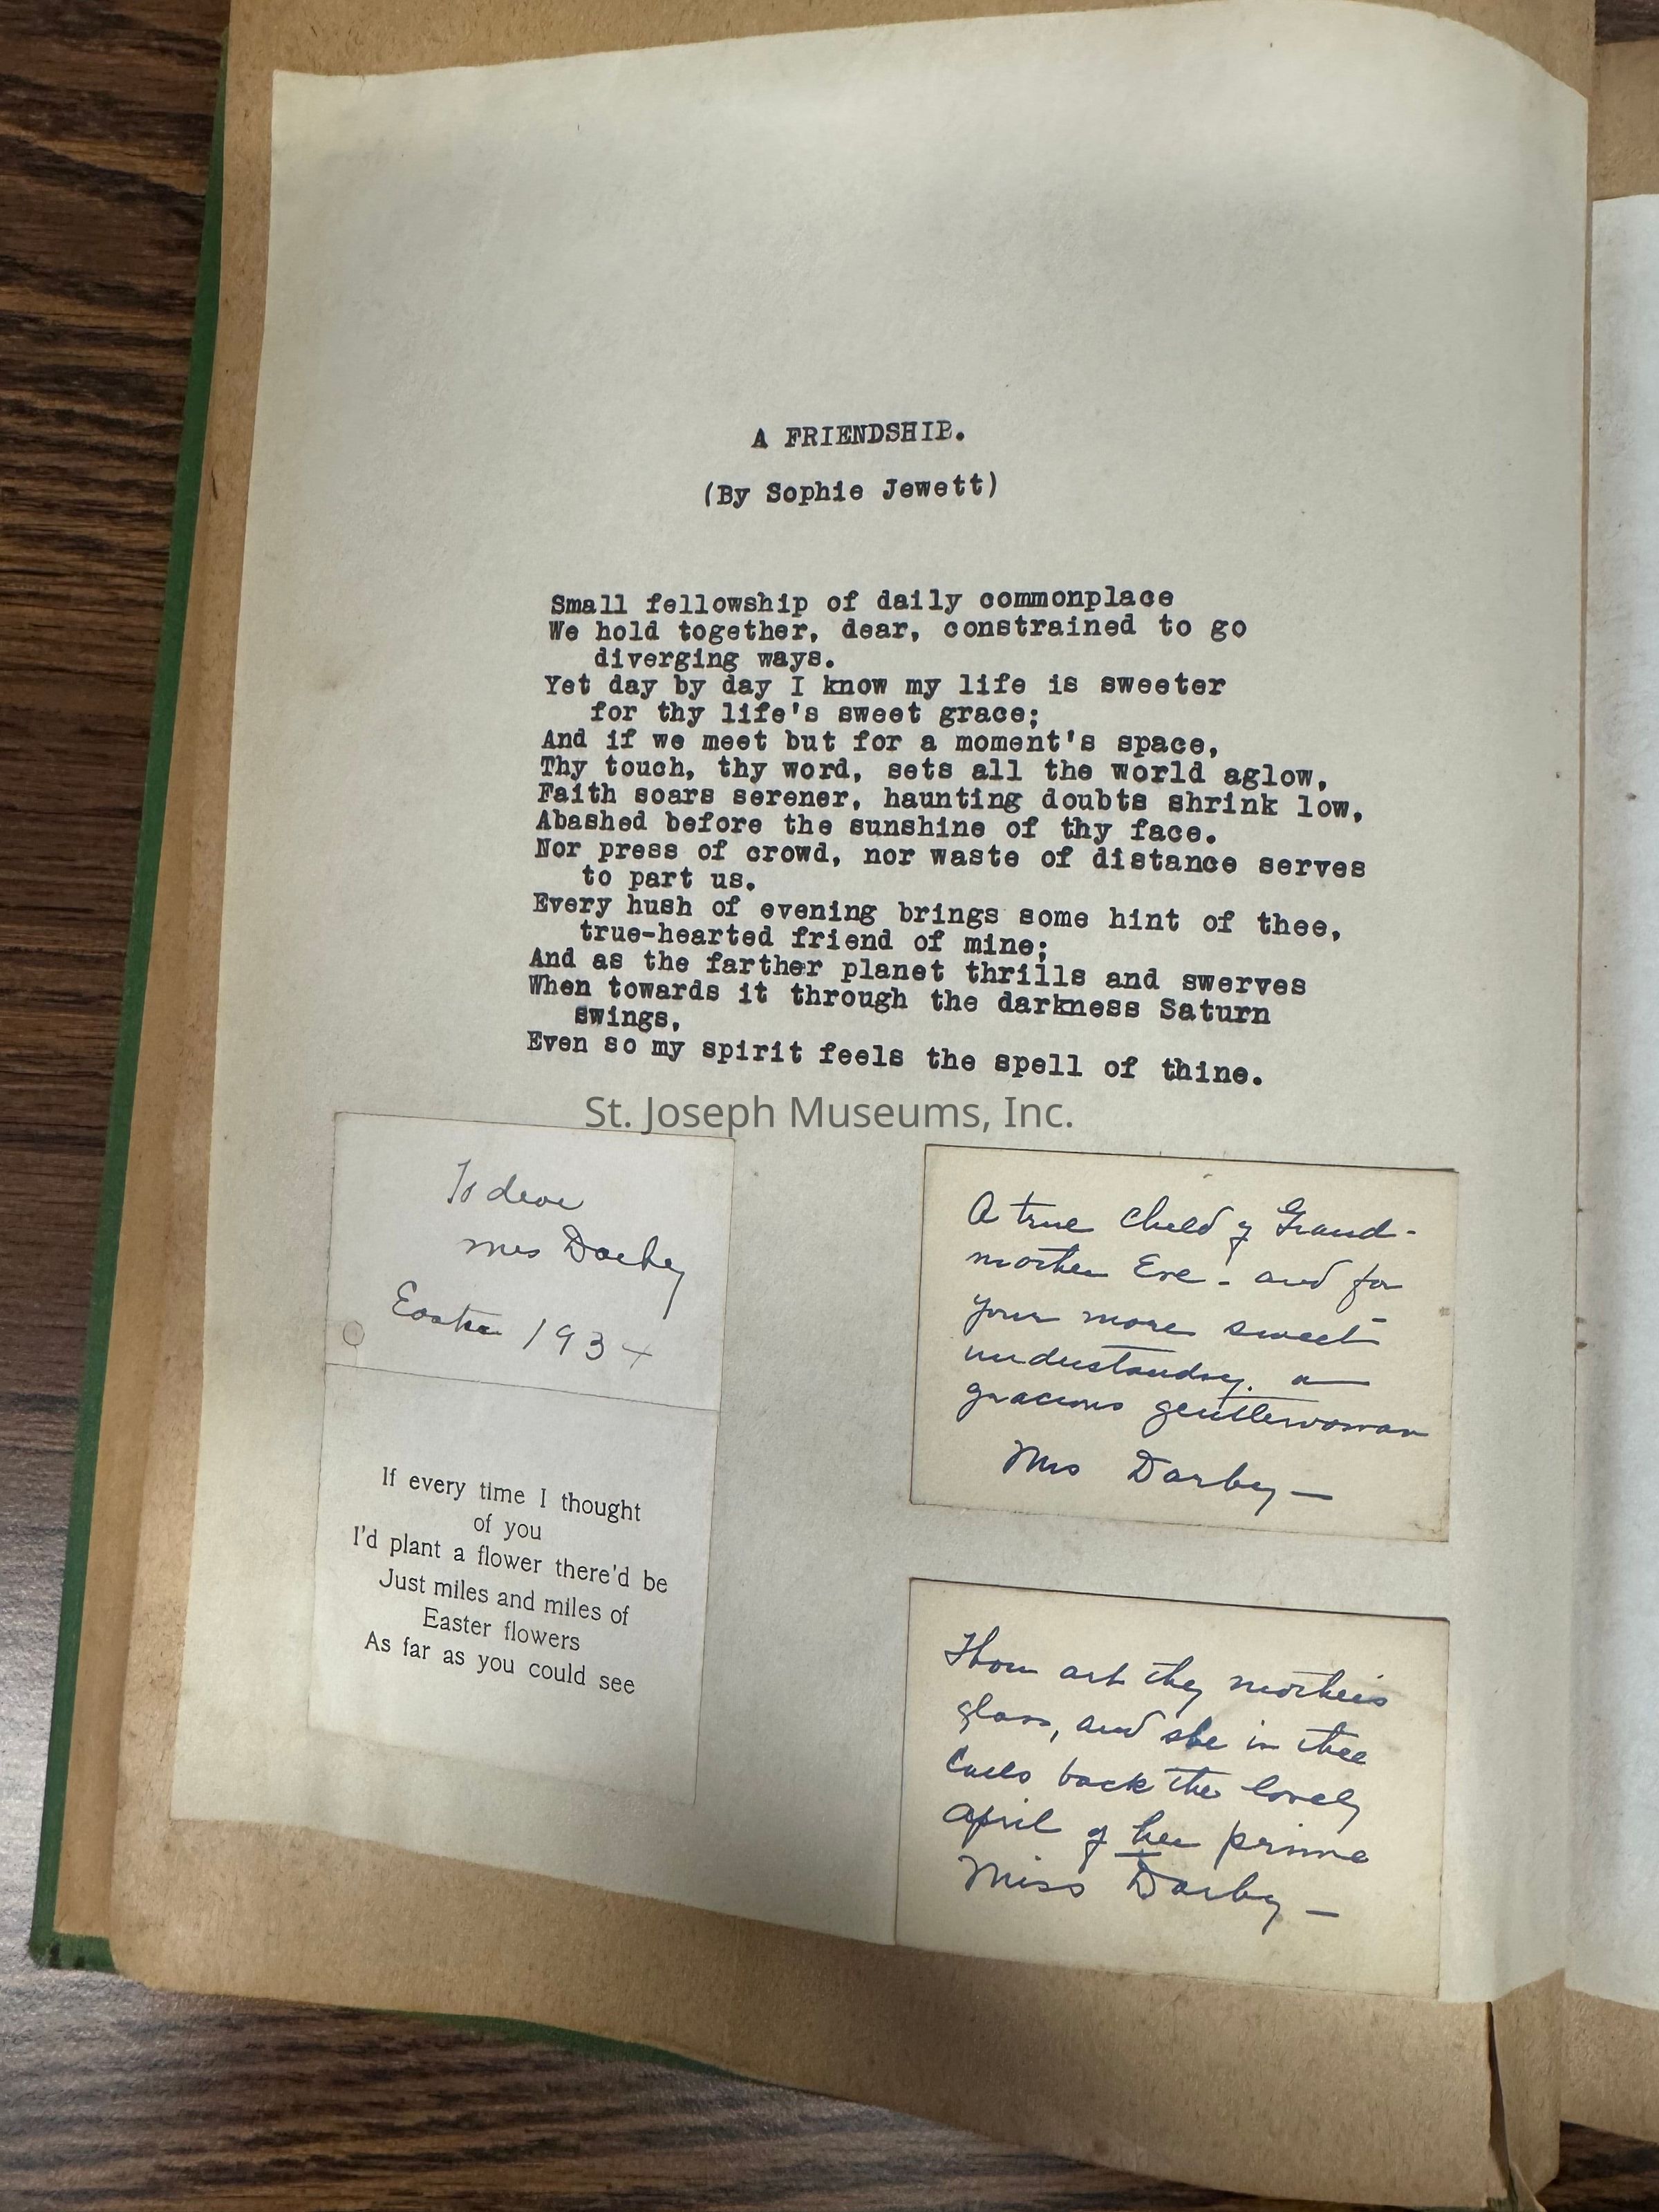 A FRIENDSHIP.
(By Sophie Jewett)
Small fellowship of daily commonplace
We hold together, dear, constrained to go
diverging ways.
Yet day by day I know my life is sweeter
for thy life's sweet grace;
And if we meet but for a moment's space,
Thy touch, thy word, sets all the world aglow,
Faith soars serener, haunting doubts shrink low,
Abashed before the sunshine of thy face.
Nor press of crowd, nor waste of distance serves
to part us.
Every hush of evening brings some hint of thee,
true-hearted friend of mine;
And as the farther planet thrills and swerves
When towards it through the darkness Saturn
swings,
Even so my spirit feels the spell of thine.
St. Joseph Museums, Inc.
To dear
Mrs Darby
Easter 1934
If every time I thought
of you
I'd plant a flower there'd be
Just miles and miles of
Easter flowers
As far as you could see
A true child of Grand-
mother Eve - and for
your more sweet
understanding, a
gracious gentlewoman
Mrs Darby —
Thou art thy mother's
glass, and she in thee
Calls back the lovely
April of her prime
Miss Darby —